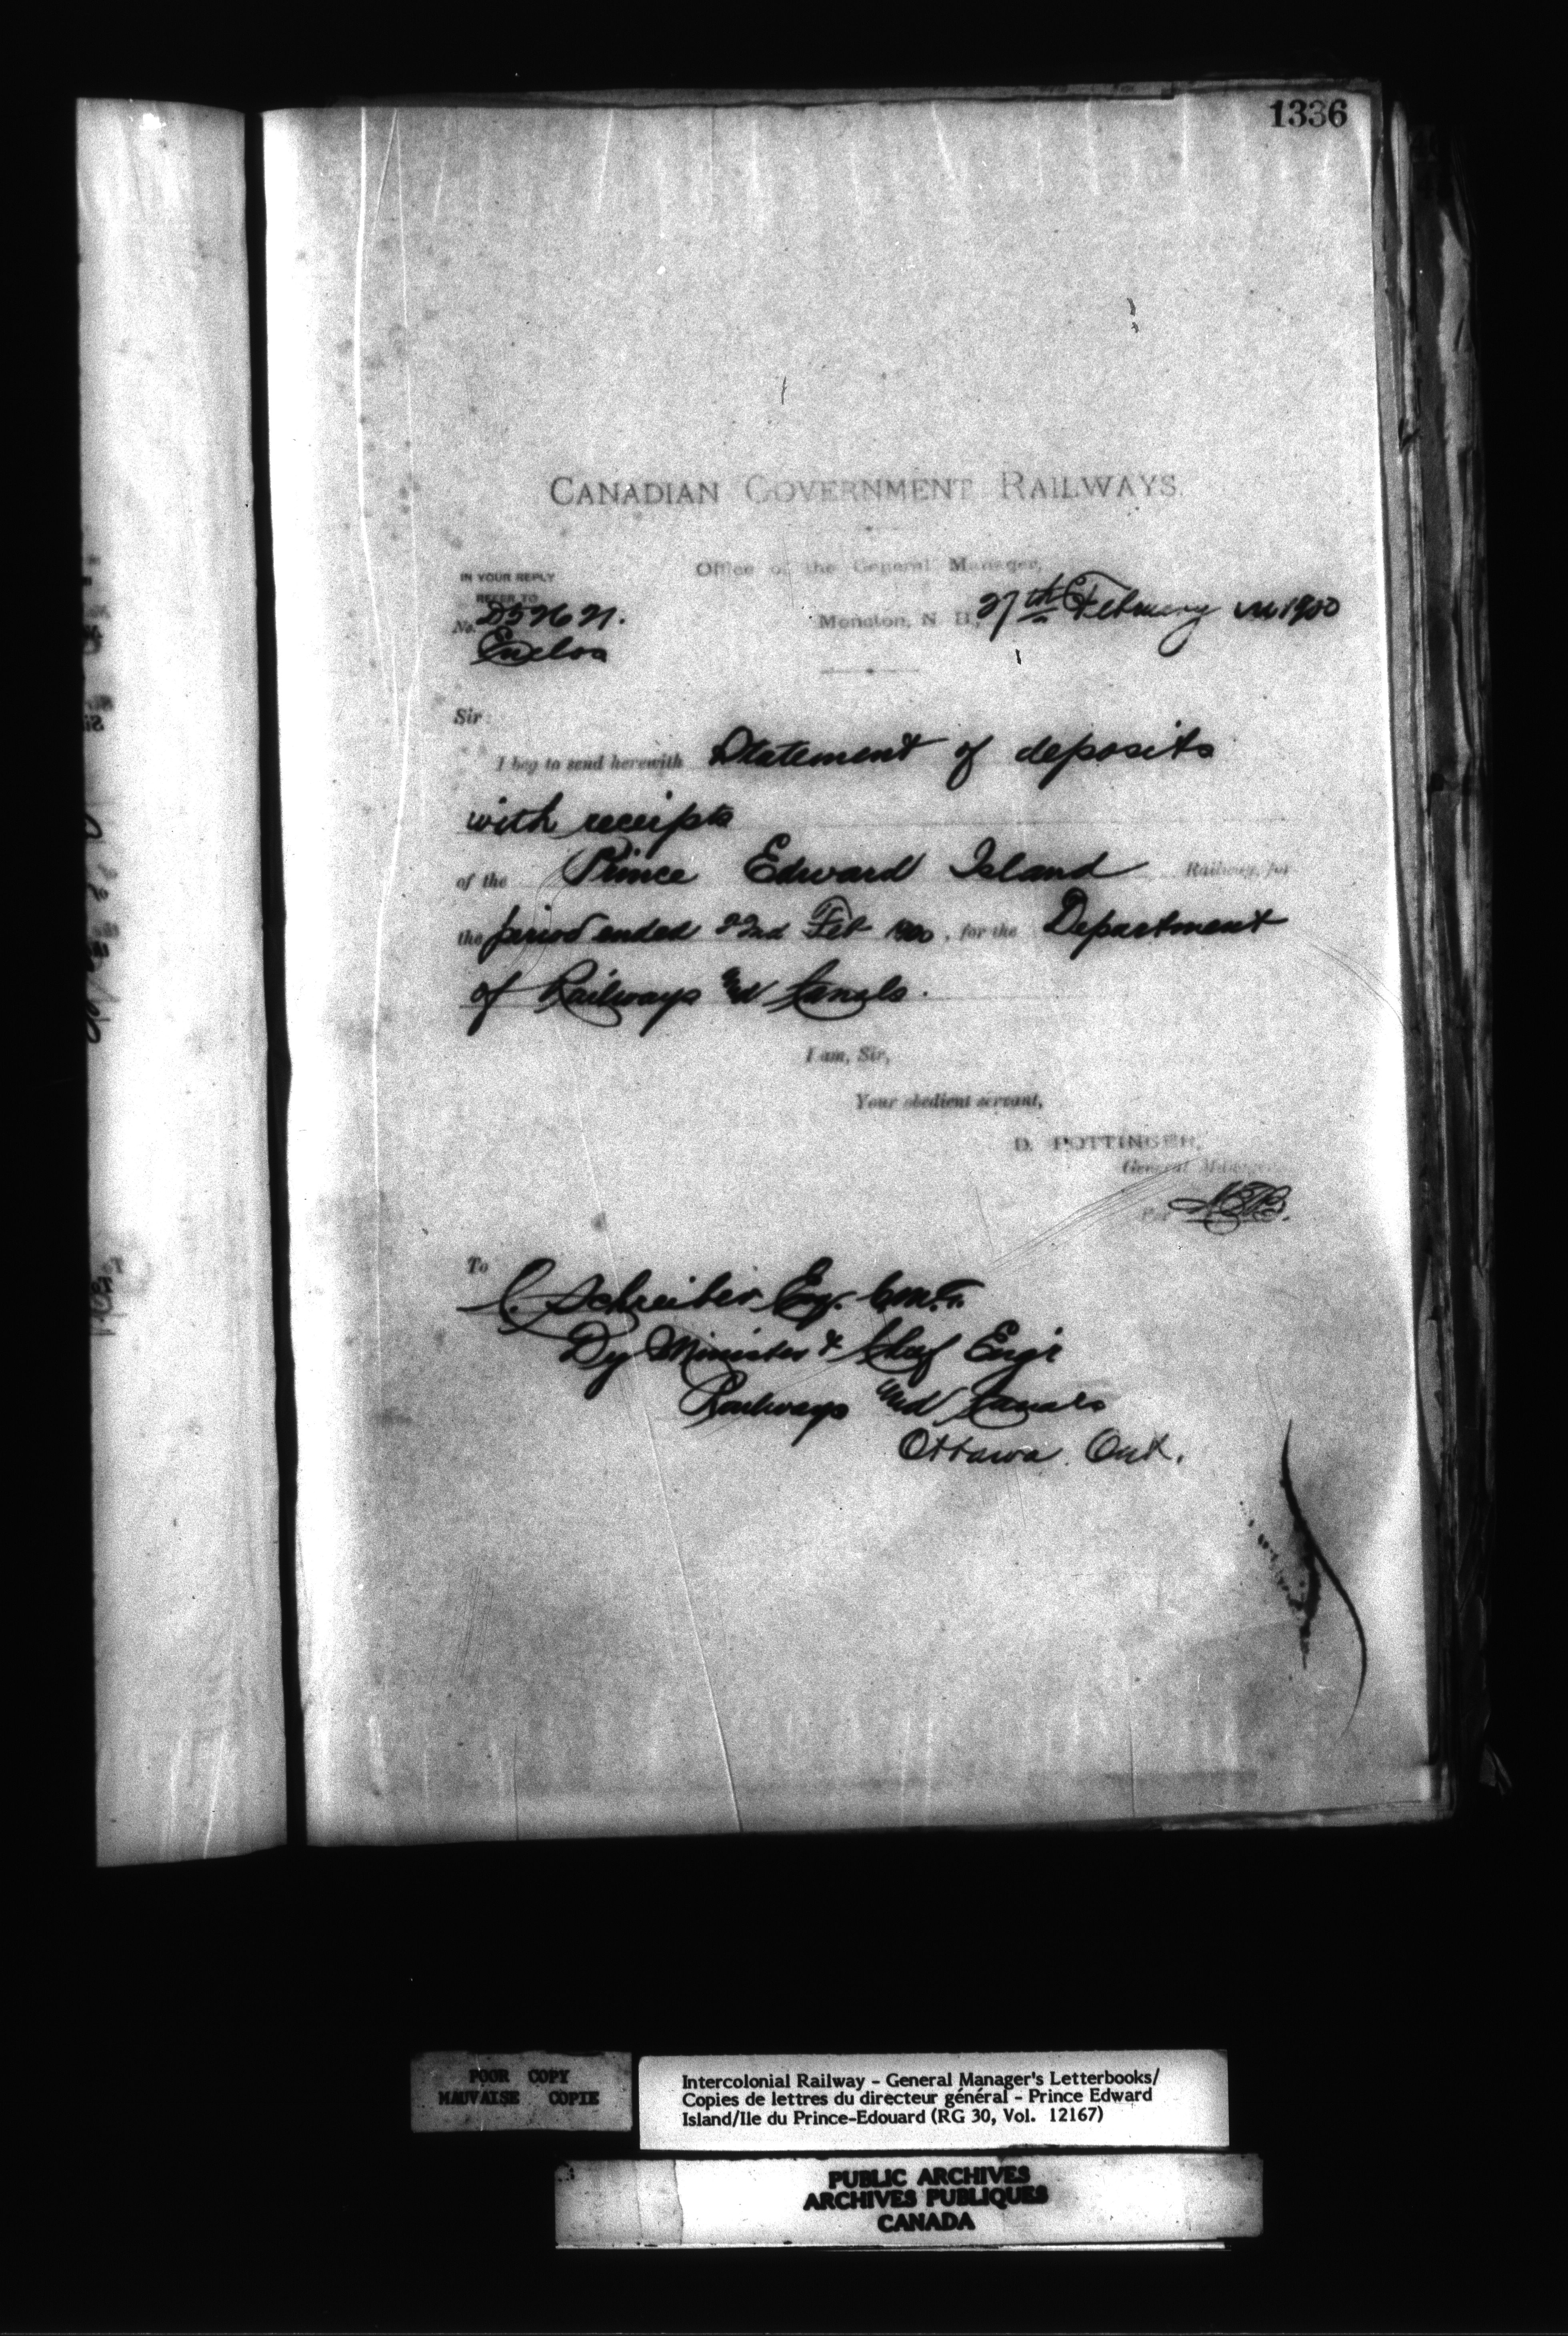 1336
CANADIAN GOVERNMENT RAILWAYS.
Office of the General Manager,
IN YOUR REPLY
REFER TO
No. D52621.
Moncton, N. B., 27th February 1900
Enclos
Sir:
I beg to send herewith Statement of deposits
with receipts
of the Prince Edward Island Railway, for
the period ended 22nd Feb 1900, for the Department
of Railways and Canals.
I am, Sir,
Your obedient servant,
D. POTTINGER,
General Manager.
Per
To
C. Schreiber Esq. C.M.G.
Dy Minister & Chief Engr
Railways and Canals
Ottawa. Ont.
POOR COPY
MAUVAISE COPIE
Intercolonial Railway - General Manager's Letterbooks/
Copies de lettres du directeur général - Prince Edward
Island/Ile du Prince-Edouard (RG 30, Vol. 12167)
PUBLIC ARCHIVES
ARCHIVES PUBLIQUES
CANADA